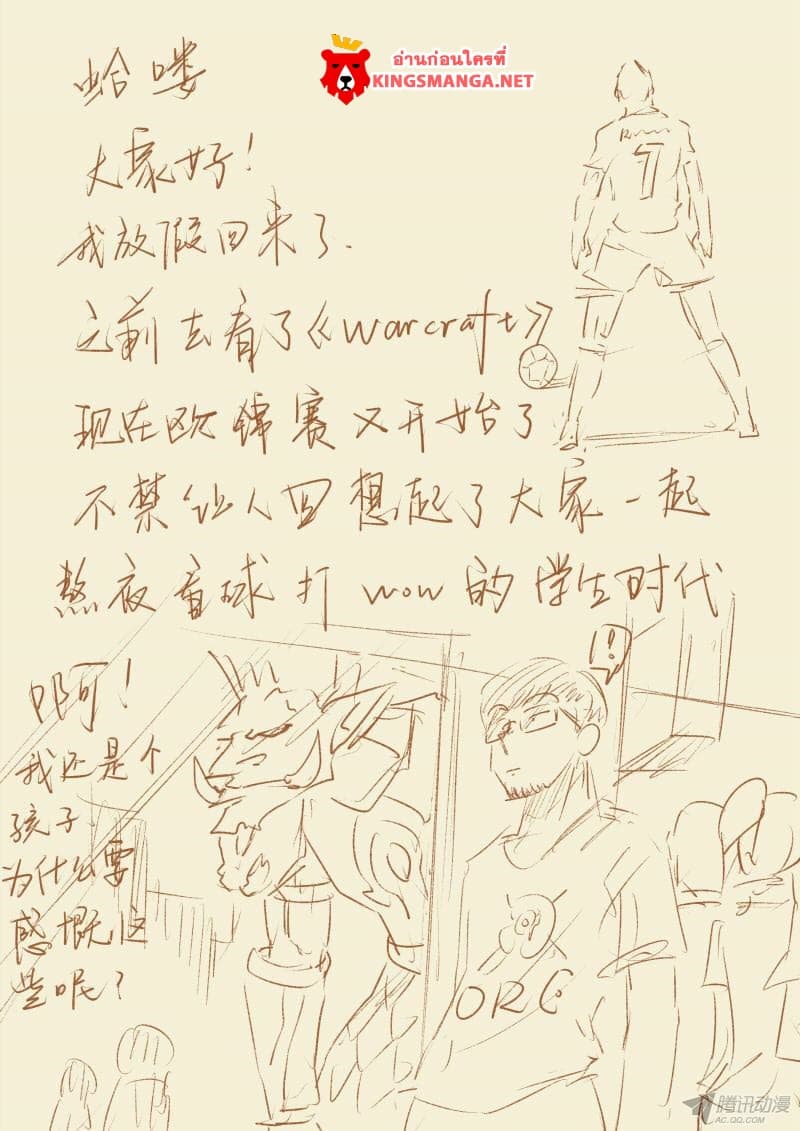 อ่านก่อนใครที่
KINGSMANGA.NET
哈喽
大家好！
我放假回来了.
之前去看了《warcraft》
现在欧锦赛又开始了
不禁让人回想起了大家一起
熬夜看球打wow的学生时代
啊！
我还是个
孩子
为什么要
感慨这
些呢？
7
!
ORC
腾讯动漫
AC.QQ.COM